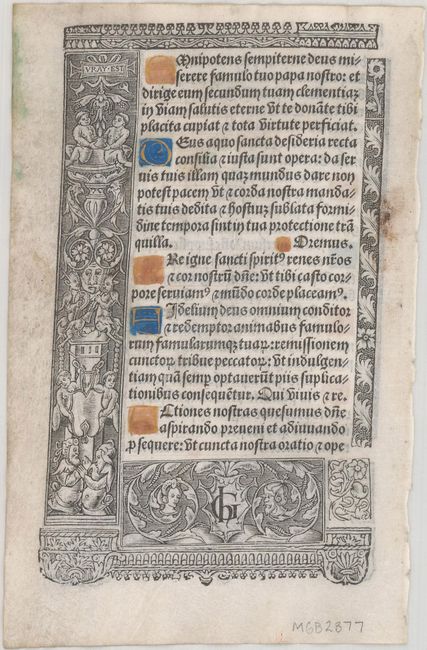 VRAY·EST
Omnipotens sempiterne deus mi-
serere famulo tuo papa nostro: et
dirige eum secundum tuam clementiaʒ
in viam salutis eterne vt te donāte tibi
placita cupiat ⁊ tota virtute perficiat.
Deus a quo sancta desideria recta
consilia ⁊ iusta sunt opera: da ser
uis tuis illam quaʒ mundus dare non
potest pacem vt ⁊ corda nostra manda-
tis tuis dedita ⁊ hostiuʒ sublata formi
dine tempora sint in tua protectione trā
quilla. Oremus.
Reigne sancti spiritꝰ renes nr̄os
⁊ cor nostrū dn̄e: vt tibi casto cor-
pore seruiamꝰ ⁊ mūdo corde placeamꝰ.
Fidelium deus omnium conditor
⁊ redemptor animabus famulo-
rum famularumqʒ tuaꝝ: remissionem
cunctoꝝ tribue peccatoꝝ: vt indulgen-
tiam quā semꝑ optauerūt piis suplica-
tionibus consequētur. Qui viuis ⁊ re.
Actiones nostras quesumus dn̄e
aspirando preueni et adiuuando
ꝓsequere: vt cuncta nostra oratio ⁊ ope
MGB2877